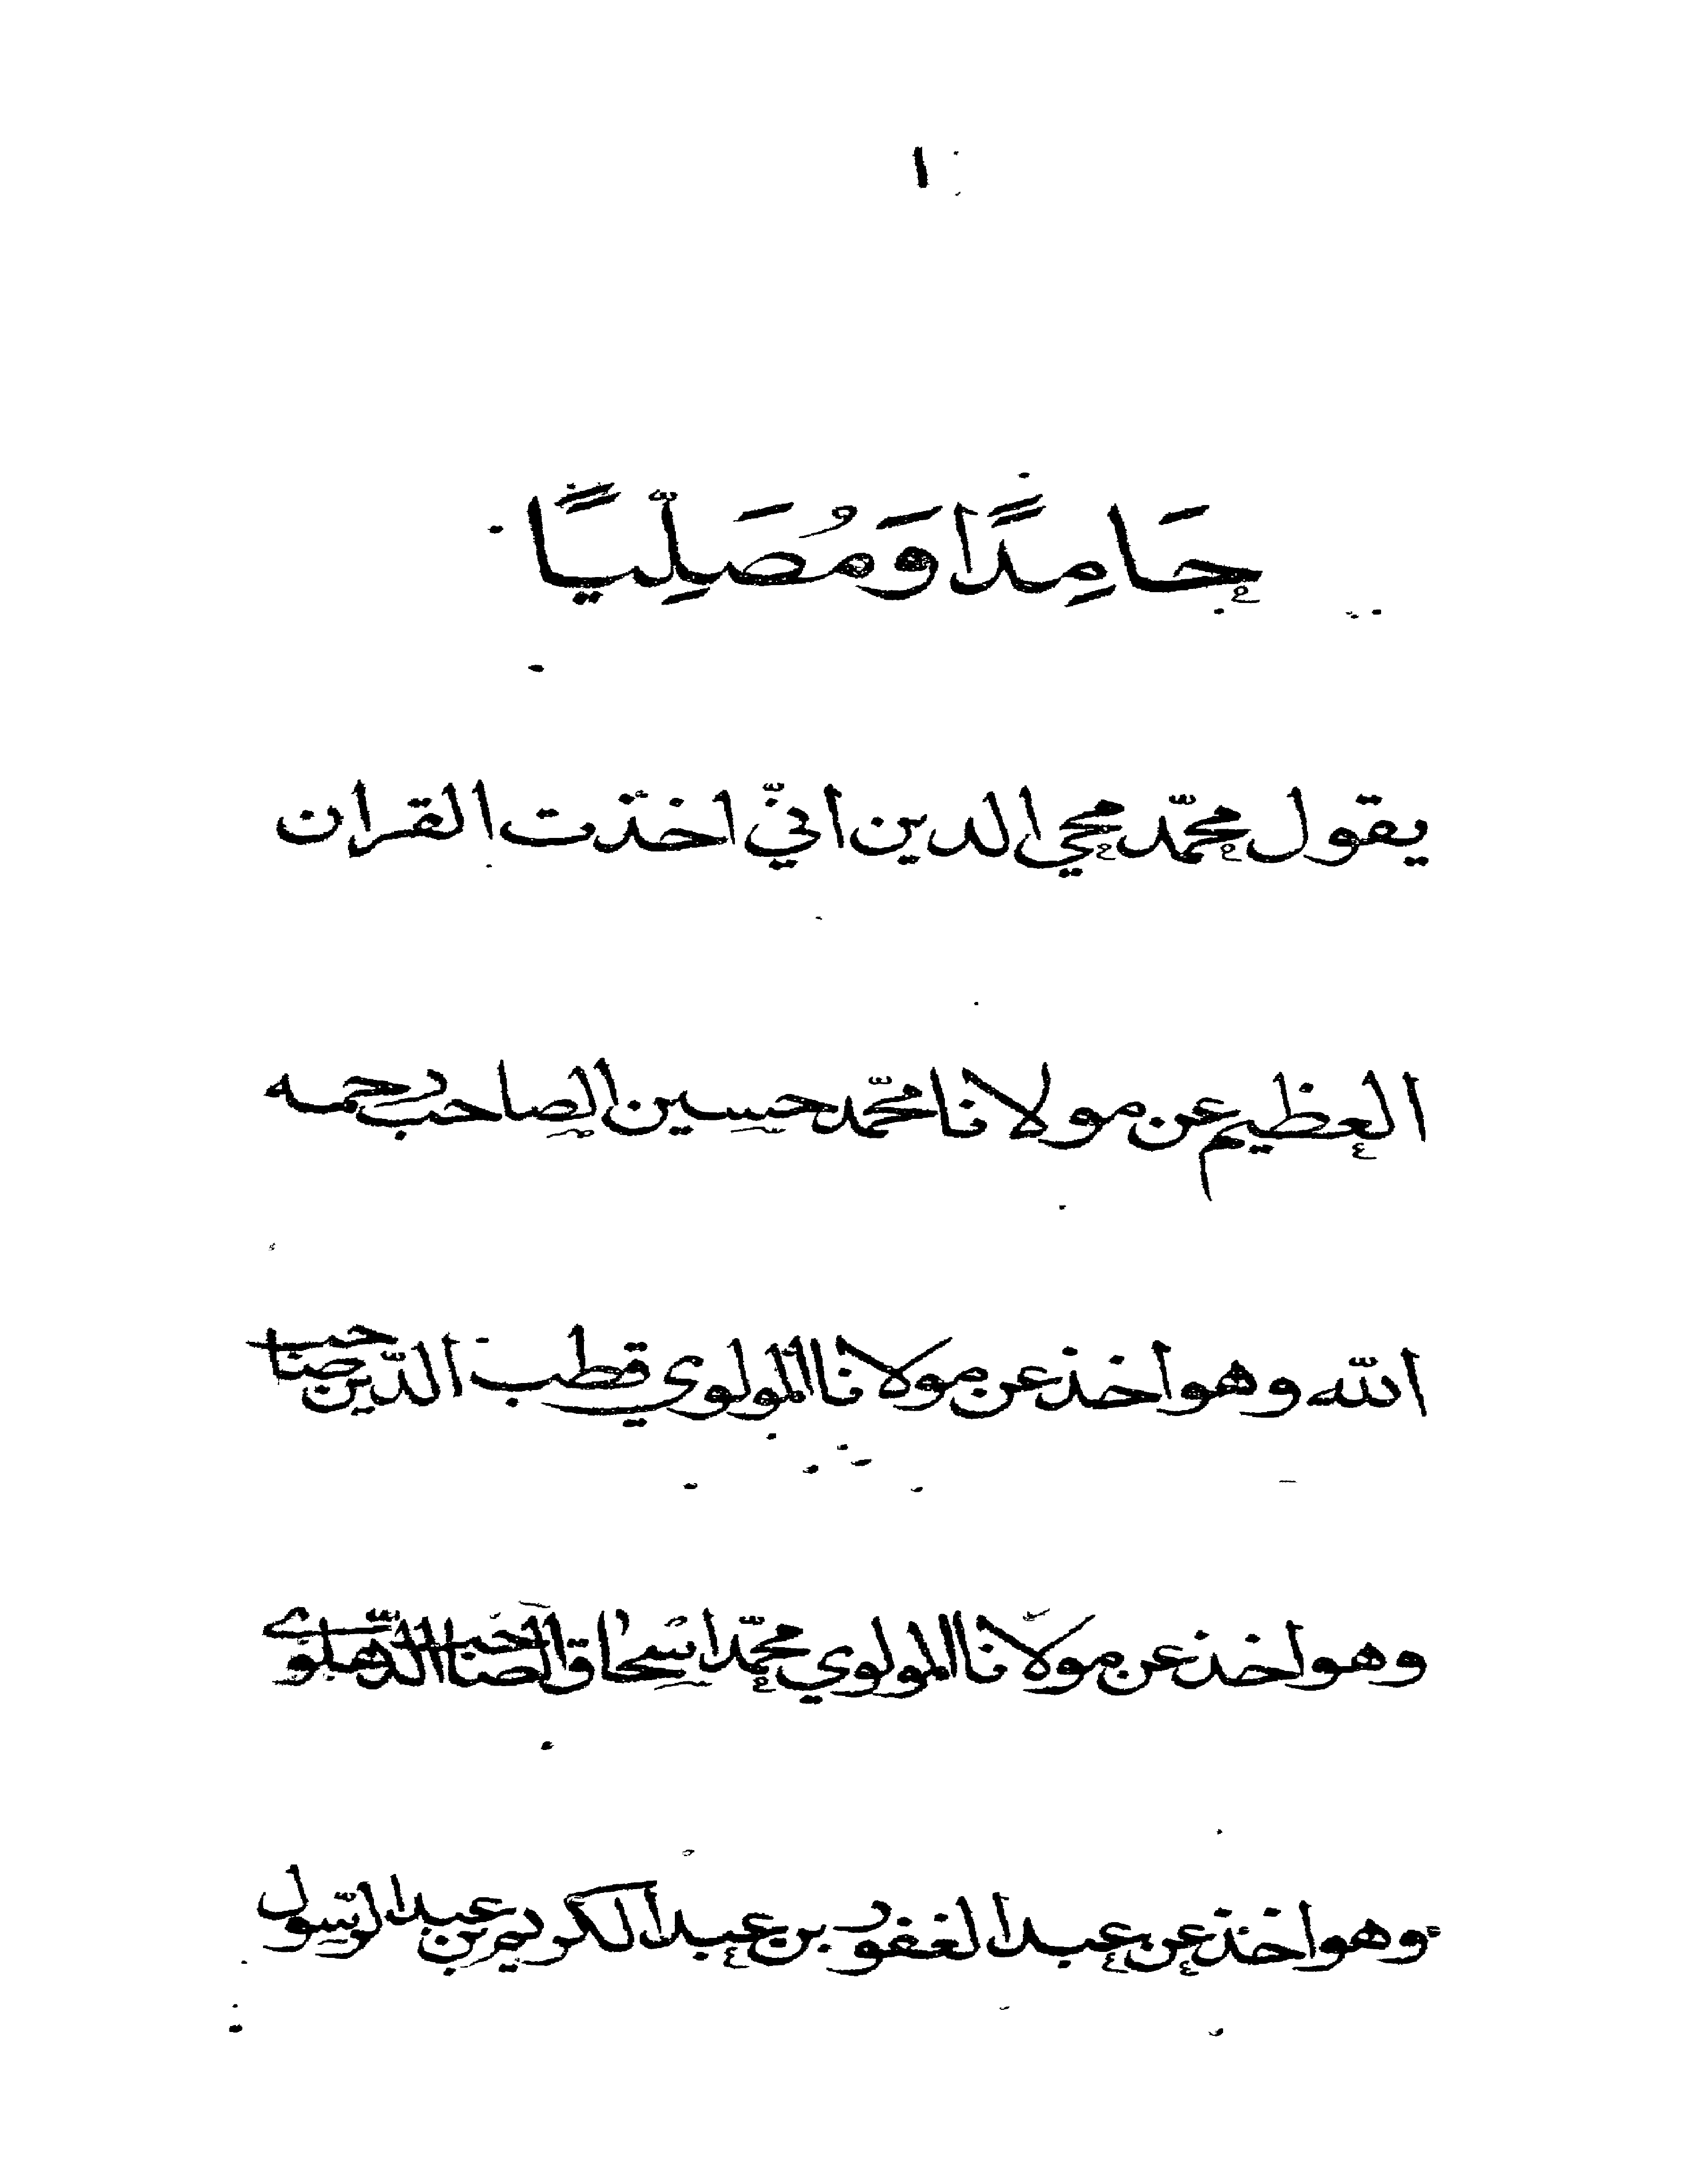 ١
حَامِدًا وَمُصَلِّيًا
يقول محمّد محي الدين انيّ اخذت القران
العظيم عن مولانا محمّد حسين الصاحب رحمه
اللّه وهو اخذ عن مولانا المولوي قطب الدّين صاحب
وهو اخذ عن مولانا المولوي محمّد اسحاق الصاحب الدّهلوي
وهو اخذ عن عبد الغفور بن عبد الكريم بن عبد الرّسول